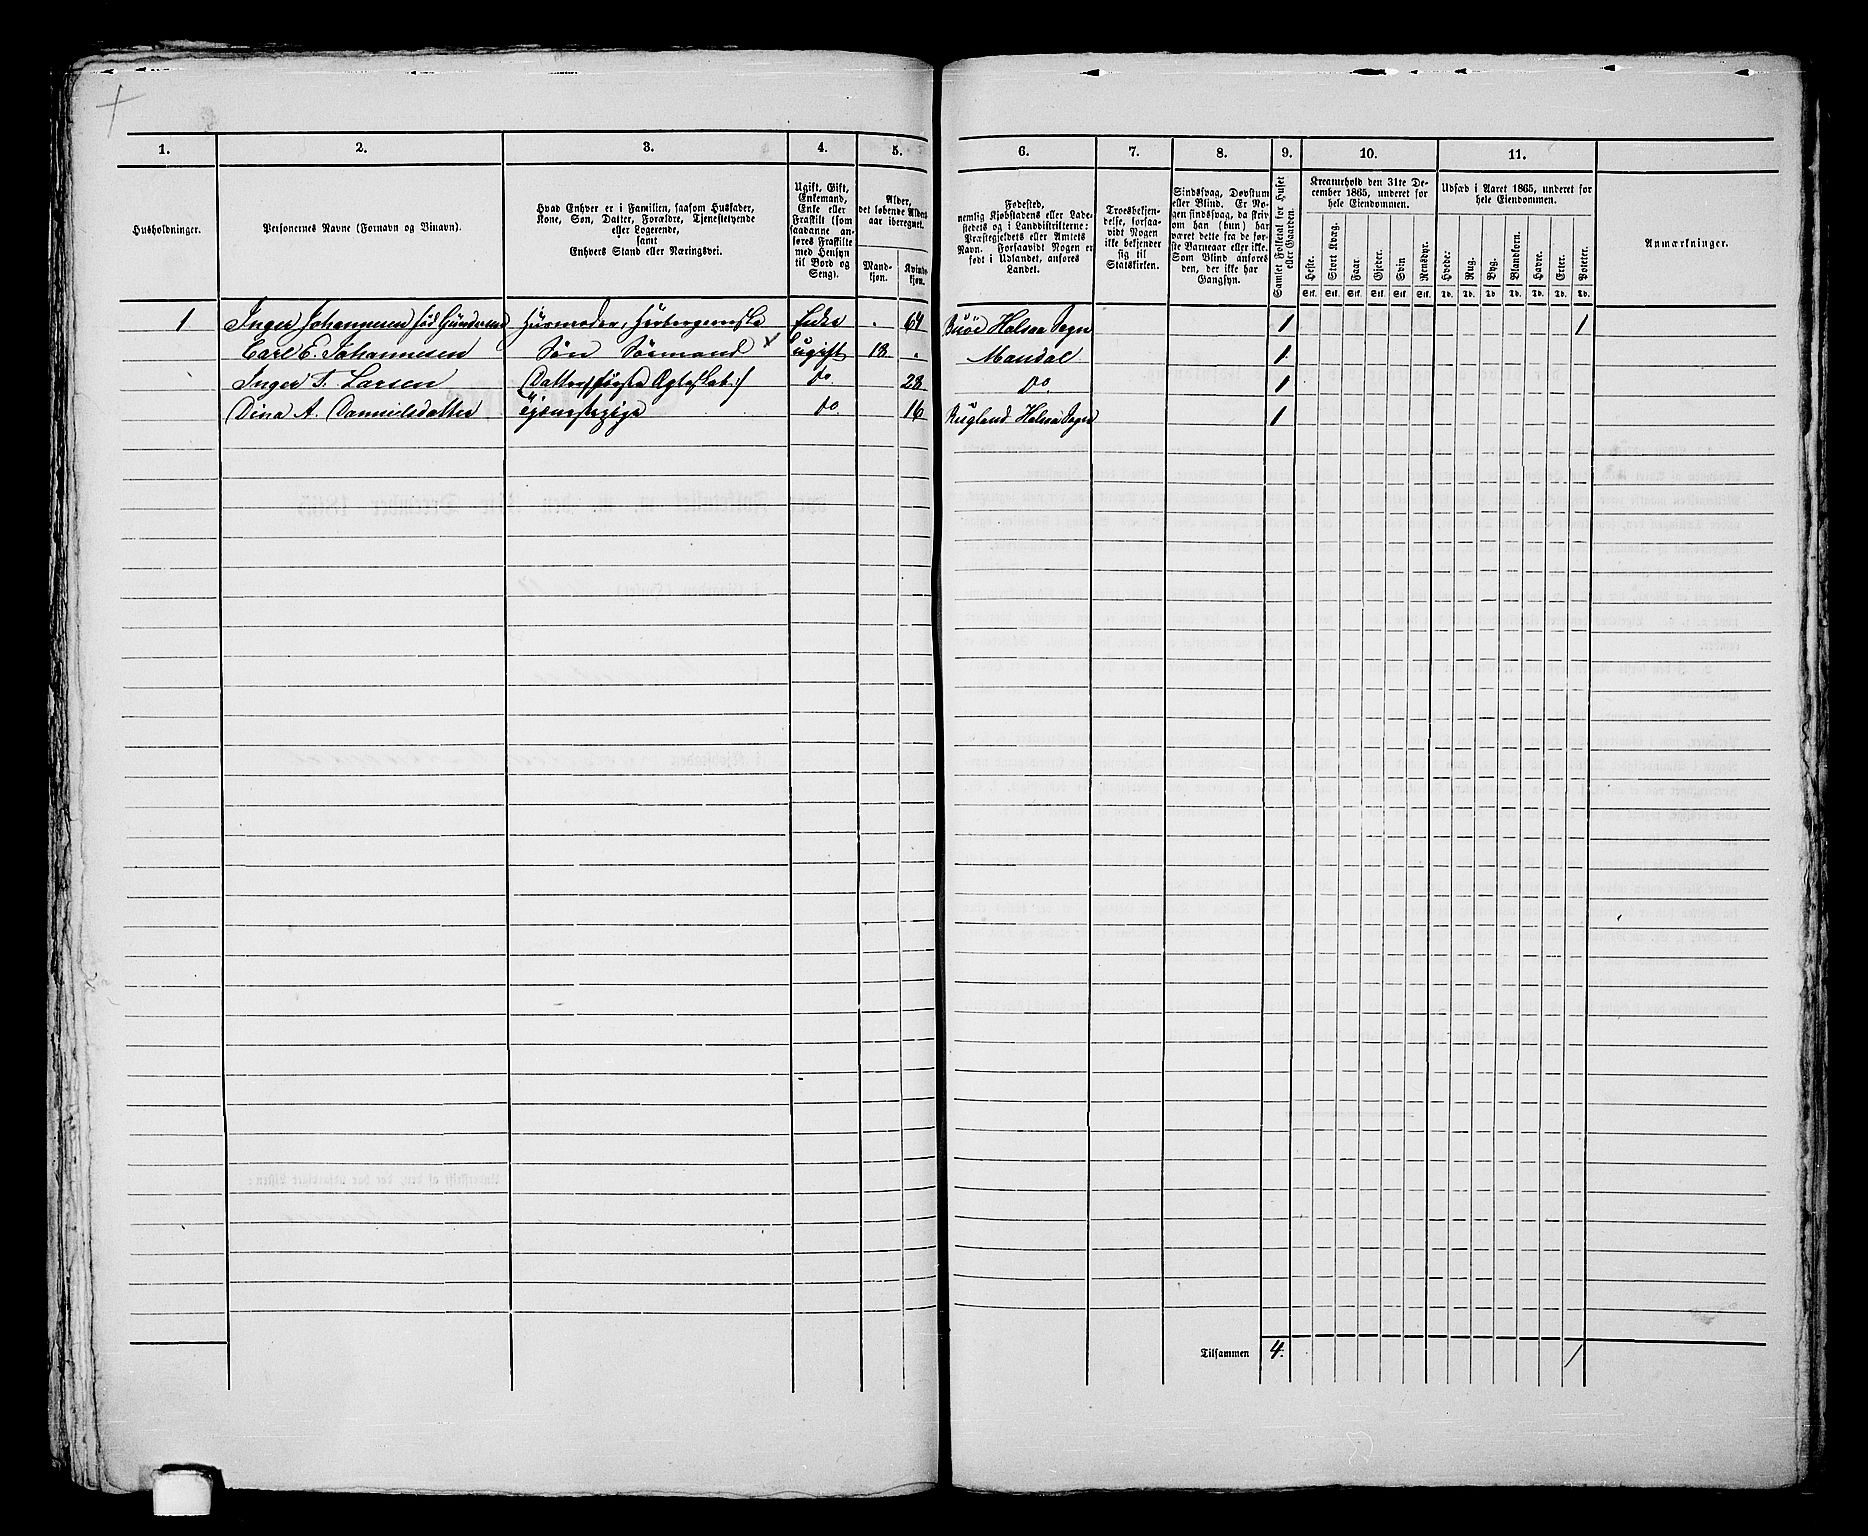 1. 2. 3. 4. 5. 6. 7. 8. 9. 10. 11.
Husholdninger.
Personernes Navne (Fornavn og Binavn).
Hvad Enhver er i Familien, saasom Husfader,
Kone, Søn, Datter, Forældre, Tjenestetyende
eller Logerende,
samt
Enhvers Stand eller Næringsvei.
Ugift, Gift,
Enkemand,
Enke eller
Fraskilt (som
saadanne an-
føres Fraskilte
med Hensyn
til Bord og
Seng).
Alder,
det løbende Alders-
aar iberegnet.
Mand-
kjøn.
Kvind-
kjøn.
Fødested,
nemlig Kjøbstadens eller Lade-
stedets og i Landdistrikterne:
Præstegjeldets eller Amtets
Navn. Forsaavidt Nogen er
født i Udlandet, anføres
Landet.
Troesbekjen-
delse, forsaa-
vidt Nogen
ikke bekjender
sig til
Statskirken.
Sindssvag, Døvstum
eller Blind. Er No-
gen sindssvag, da skriv
om han (hun) har
været dette fra de før-
ste Barneaar eller ikke.
Som Blind anføres
den, der ikke har
Gangsyn.
Samlet Folketal for Huset
eller Gaarden.
Kreaturhold den 31te De-
cember 1865, underet for
hele Eiendommen.
Heste. Stort Kvæg. Faar. Gjeder. Svin Rensdyr.
Stk. Stk. Stk. Stk. Stk. Stk.
Udsæd i Aaret 1865, underet for
hele Eiendommen.
Hvede: Rug. Byg. Blandkorn. Havre. Erter. Poteter.
Td. Td. Td. Td. Td. Td. Td.
Anmærkninger.
1 Inger Johannesen fød Enke 64 Halsaa Sogn 1 1
Carl E. Johannesen Søn Sømand ugift 18 Mandal 1
Inger T. Larsen Datter første Ægteskab:/ do 28 do 1
Dina A. Dannielsdatter Tjenestepige do 16 Halsaa Sogn 1
Tilsammen 4. 1